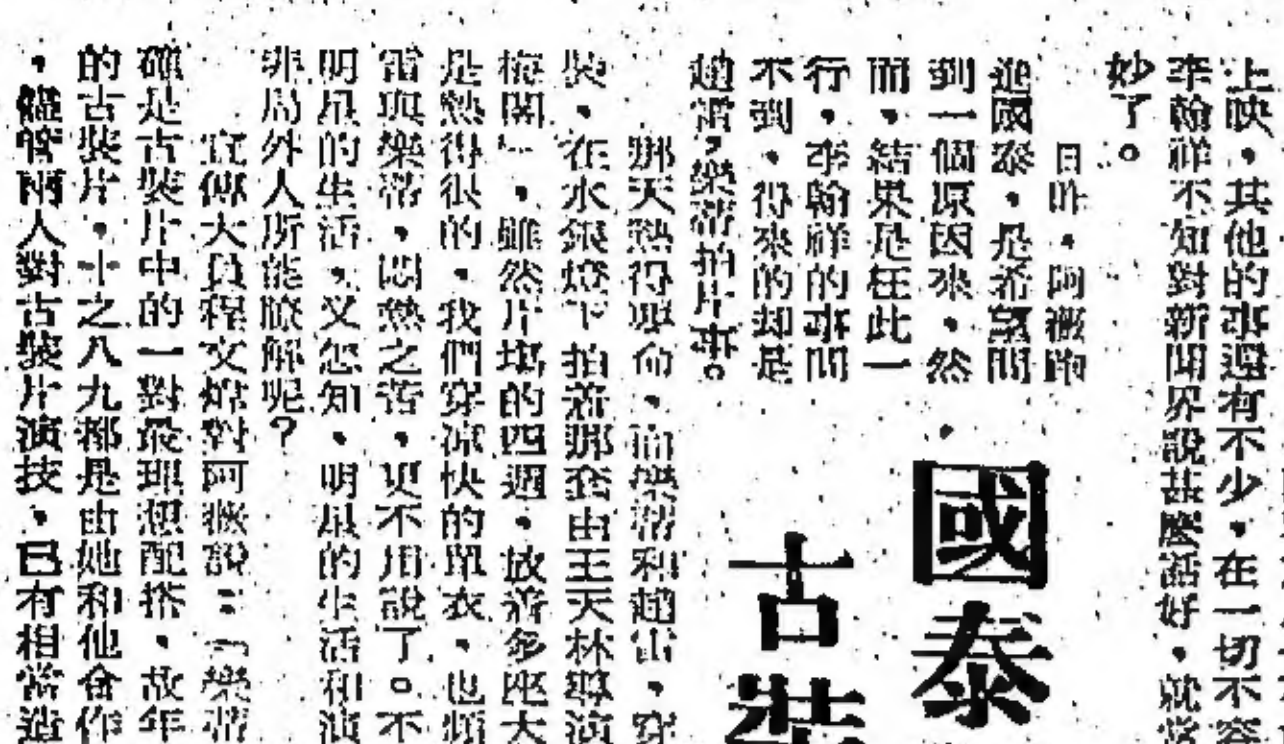 上映，其他的事還有不少，在一切不容
李翰祥不知對新聞界說甚麽話好，就當
妙了。
日昨，阿薇跑
進國泰，是希望問
到一個原因來，然
而，結果是在此一
行，李翰祥的事問
不到，得來的却是
趙雷，樂蒂拍片事。
國泰
古裝
那天熱得要命，而樂蒂和趙雷，穿
裝，在水銀燈下拍着那套由王天林導演
梅閣」，雖然片塲的四週，放着多座大
是熱得很的，我們穿凉快的單衣，也煩
雷與樂蒂，悶熱之苦，更不用說了。不
明星的生活，又怎知，明星的生活和演
非局外人所能瞭解呢？
宣傳大員程文焯對阿薇說：「樂蒂
確是古裝片中的一對最理想配搭，故年
的古裝片，十之八九都是由她和他合作
，儘管兩人對古裝片演技，已有相當造